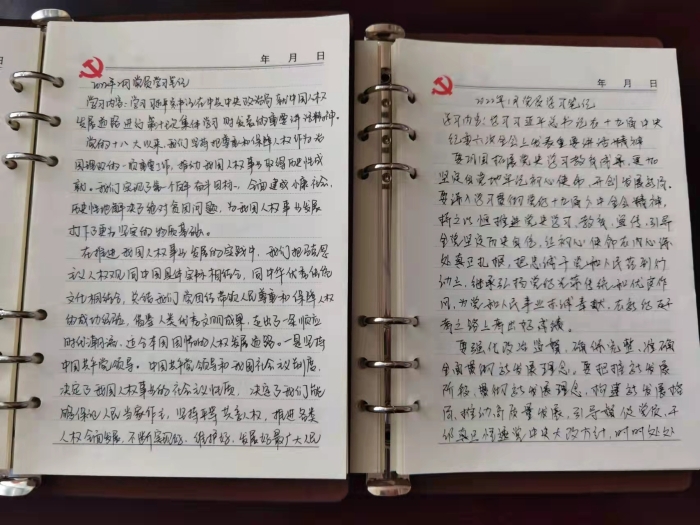 年 月 日
2022年2月党员学习笔记
学习内容:学习习近平总书记在中共中央政治局就中国人权
发展道路进行第十次集体学习时发表的重要讲话精神。
党的十八大以来,我们坚持把尊重和保障人权作为治
国理政的一项重要工作,推动我国人权事业取得历史性成
就。我们实现了第一个百年奋斗目标,全面建成小康社会,
历史性地解决了绝对贫困问题,为我国人权事业发展
打下了更为坚实的物质基础。
在推进我国人权事业发展的实践中,我们把马克思
主义人权观同中国具体实际相结合、同中华优秀传统
文化相结合,总结我们党团结带领人民尊重和保障人权
的成功经验,借鉴人类优秀文明成果,走出了一条顺应
时代潮流、适合本国国情的人权发展道路。一是坚持
中国共产党领导。中国共产党领导和我国社会主义制度,
决定了我国人权事业的社会主义性质,决定了我们能
够保证人民当家作主,坚持平等共享人权,推进各类
人权全面发展,不断实现好、维护好、发展好最广大人民
年 月 日
2022年1月党员学习笔记
学习内容:学习习近平总书记在十九届中央
纪委六次全会上发表重要讲话精神
要巩固拓展党史学习教育成果,更加
坚定自觉地牢记初心使命、开创发展新局。
要深入学习贯彻党的十九届六中全会精神,
持之以恒推进党史学习、教育、宣传,引导
全党坚定历史自信,让初心使命在内心深
处真正扎根,把忠诚于党和人民落到行
动上,继承弘扬党的光荣传统和优良作
风,为党和人民事业赤诚奉献,在新的赶
考之路上考出好成绩。
要强化政治监督,确保完整、准确、
全面贯彻新发展理念。要把握新发展
阶段、贯彻新发展理念、构建新发展格
局、推动高质量发展,引导督促党员、干
部真正悟透党中央大政方针,时时处处